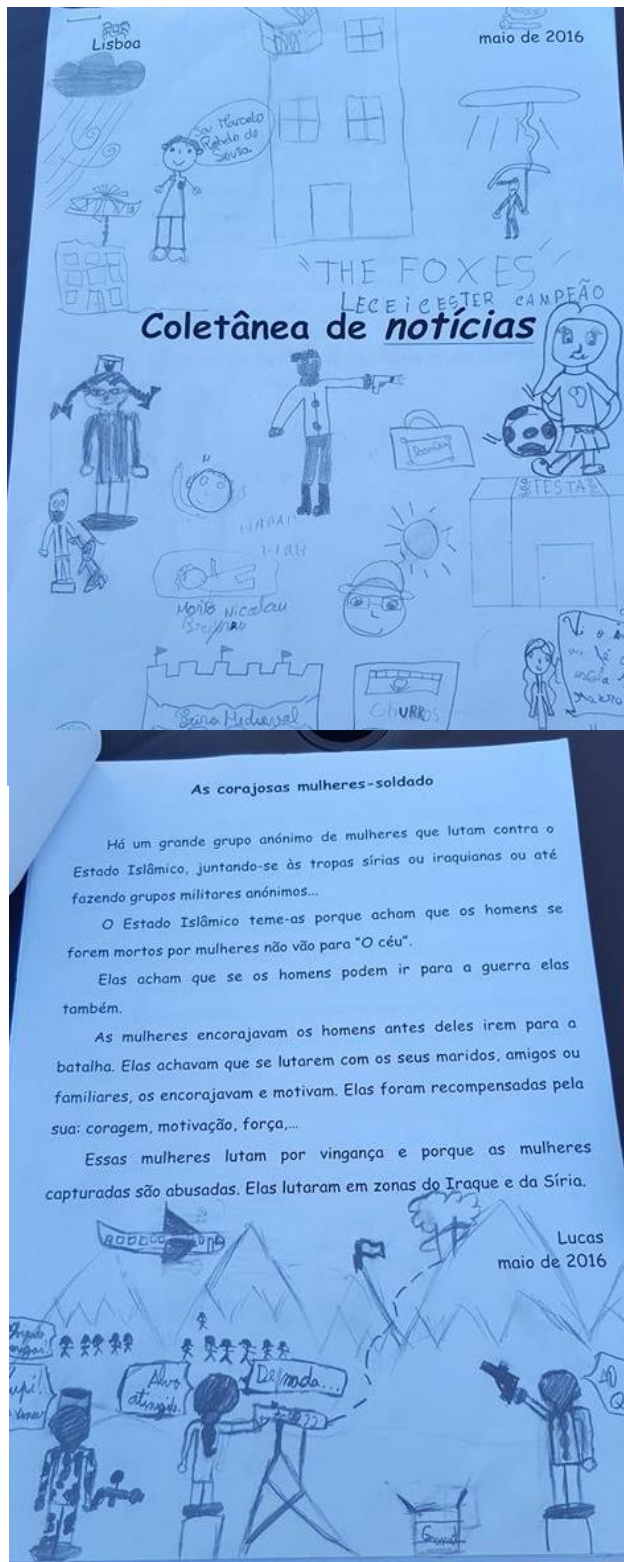 Lisboa
maio de 2016
Sou Marcelo
Rebelo de
Sousa
"THE FOXES"
LECEiCESTER CAMPEÃO
Coletânea de notícias
FESTA
HAHAH
HAH
Morto Nicolau
Feira Medieval
CHURROS
escola
As corajosas mulheres-soldado
Há um grande grupo anónimo de mulheres que lutam contra o
Estado Islâmico, juntando-se às tropas sírias ou iraquianas ou até
fazendo grupos militares anónimos...
O Estado Islâmico teme-as porque acham que os homens se
forem mortos por mulheres não vão para "O céu".
Elas acham que se os homens podem ir para a guerra elas
também.
As mulheres encorajavam os homens antes deles irem para a
batalha. Elas achavam que se lutarem com os seus maridos, amigos ou
familiares, os encorajavam e motivam. Elas foram recompensadas pela
sua: coragem, motivação, força,...
Essas mulheres lutam por vingança e porque as mulheres
capturadas são abusadas. Elas lutaram em zonas do Iraque e da Síria.
Lucas
maio de 2016
Alvo
atingido.
De nada...